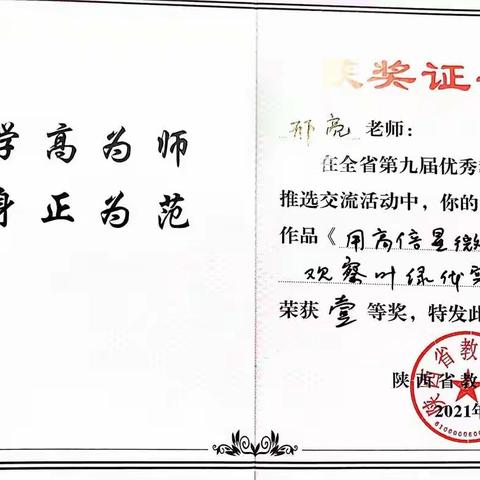 学高为师
身正为范
获奖证
邢亮 老师：
在全省第九届优秀
推选交流活动中，你的
作品《用高倍显微
观察叶绿体
荣获 壹 等奖，特发此
陕西省教
2021年
陕西省教